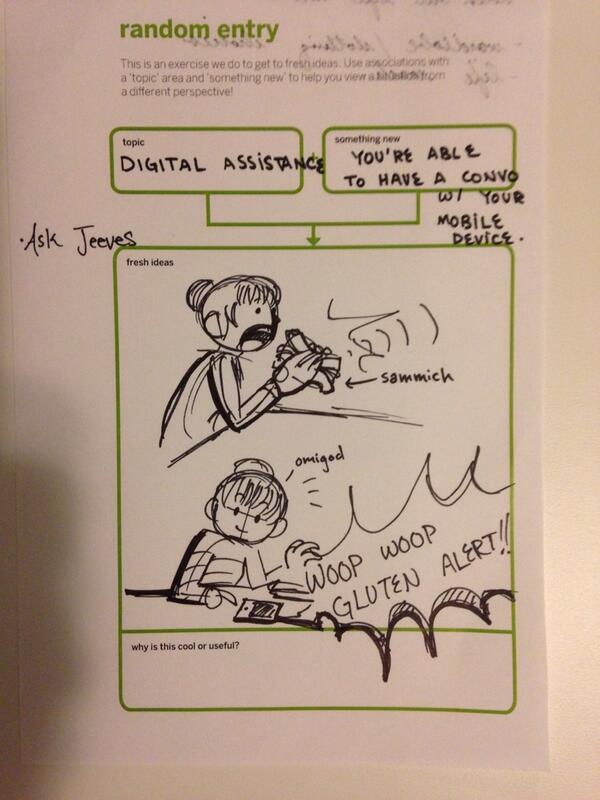 random entry
This is an exercise we do to get to fresh ideas. Use associations with
a 'topic' area and 'something new' to help you view a situation from
a different perspective!
topic
DIGITAL ASSISTANCE
something new
YOU'RE ABLE
TO HAVE A CONVO
W/ YOUR
MOBILE
DEVICE.
·Ask Jeeves
fresh ideas
sammich
omigod
WOOP WOOP
GLUTEN ALERT!!
why is this cool or useful?